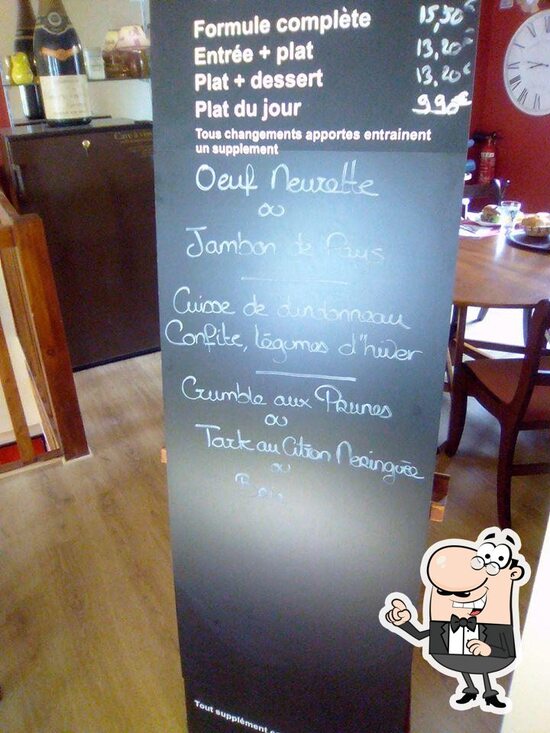 Formule complète 15,50€
Entrée + plat 13,20€
Plat + dessert 13,20€
Plat du jour 9,90€
Tous changements apportes entrainent
un supplement
Oeuf Meurette
ou
Jambon de Pays
Cuisse de dindonneau
Confite, légumes d'hiver
Crumble aux Prunes
ou
Tarte au Citron Meringuée
ou
Tout supplément